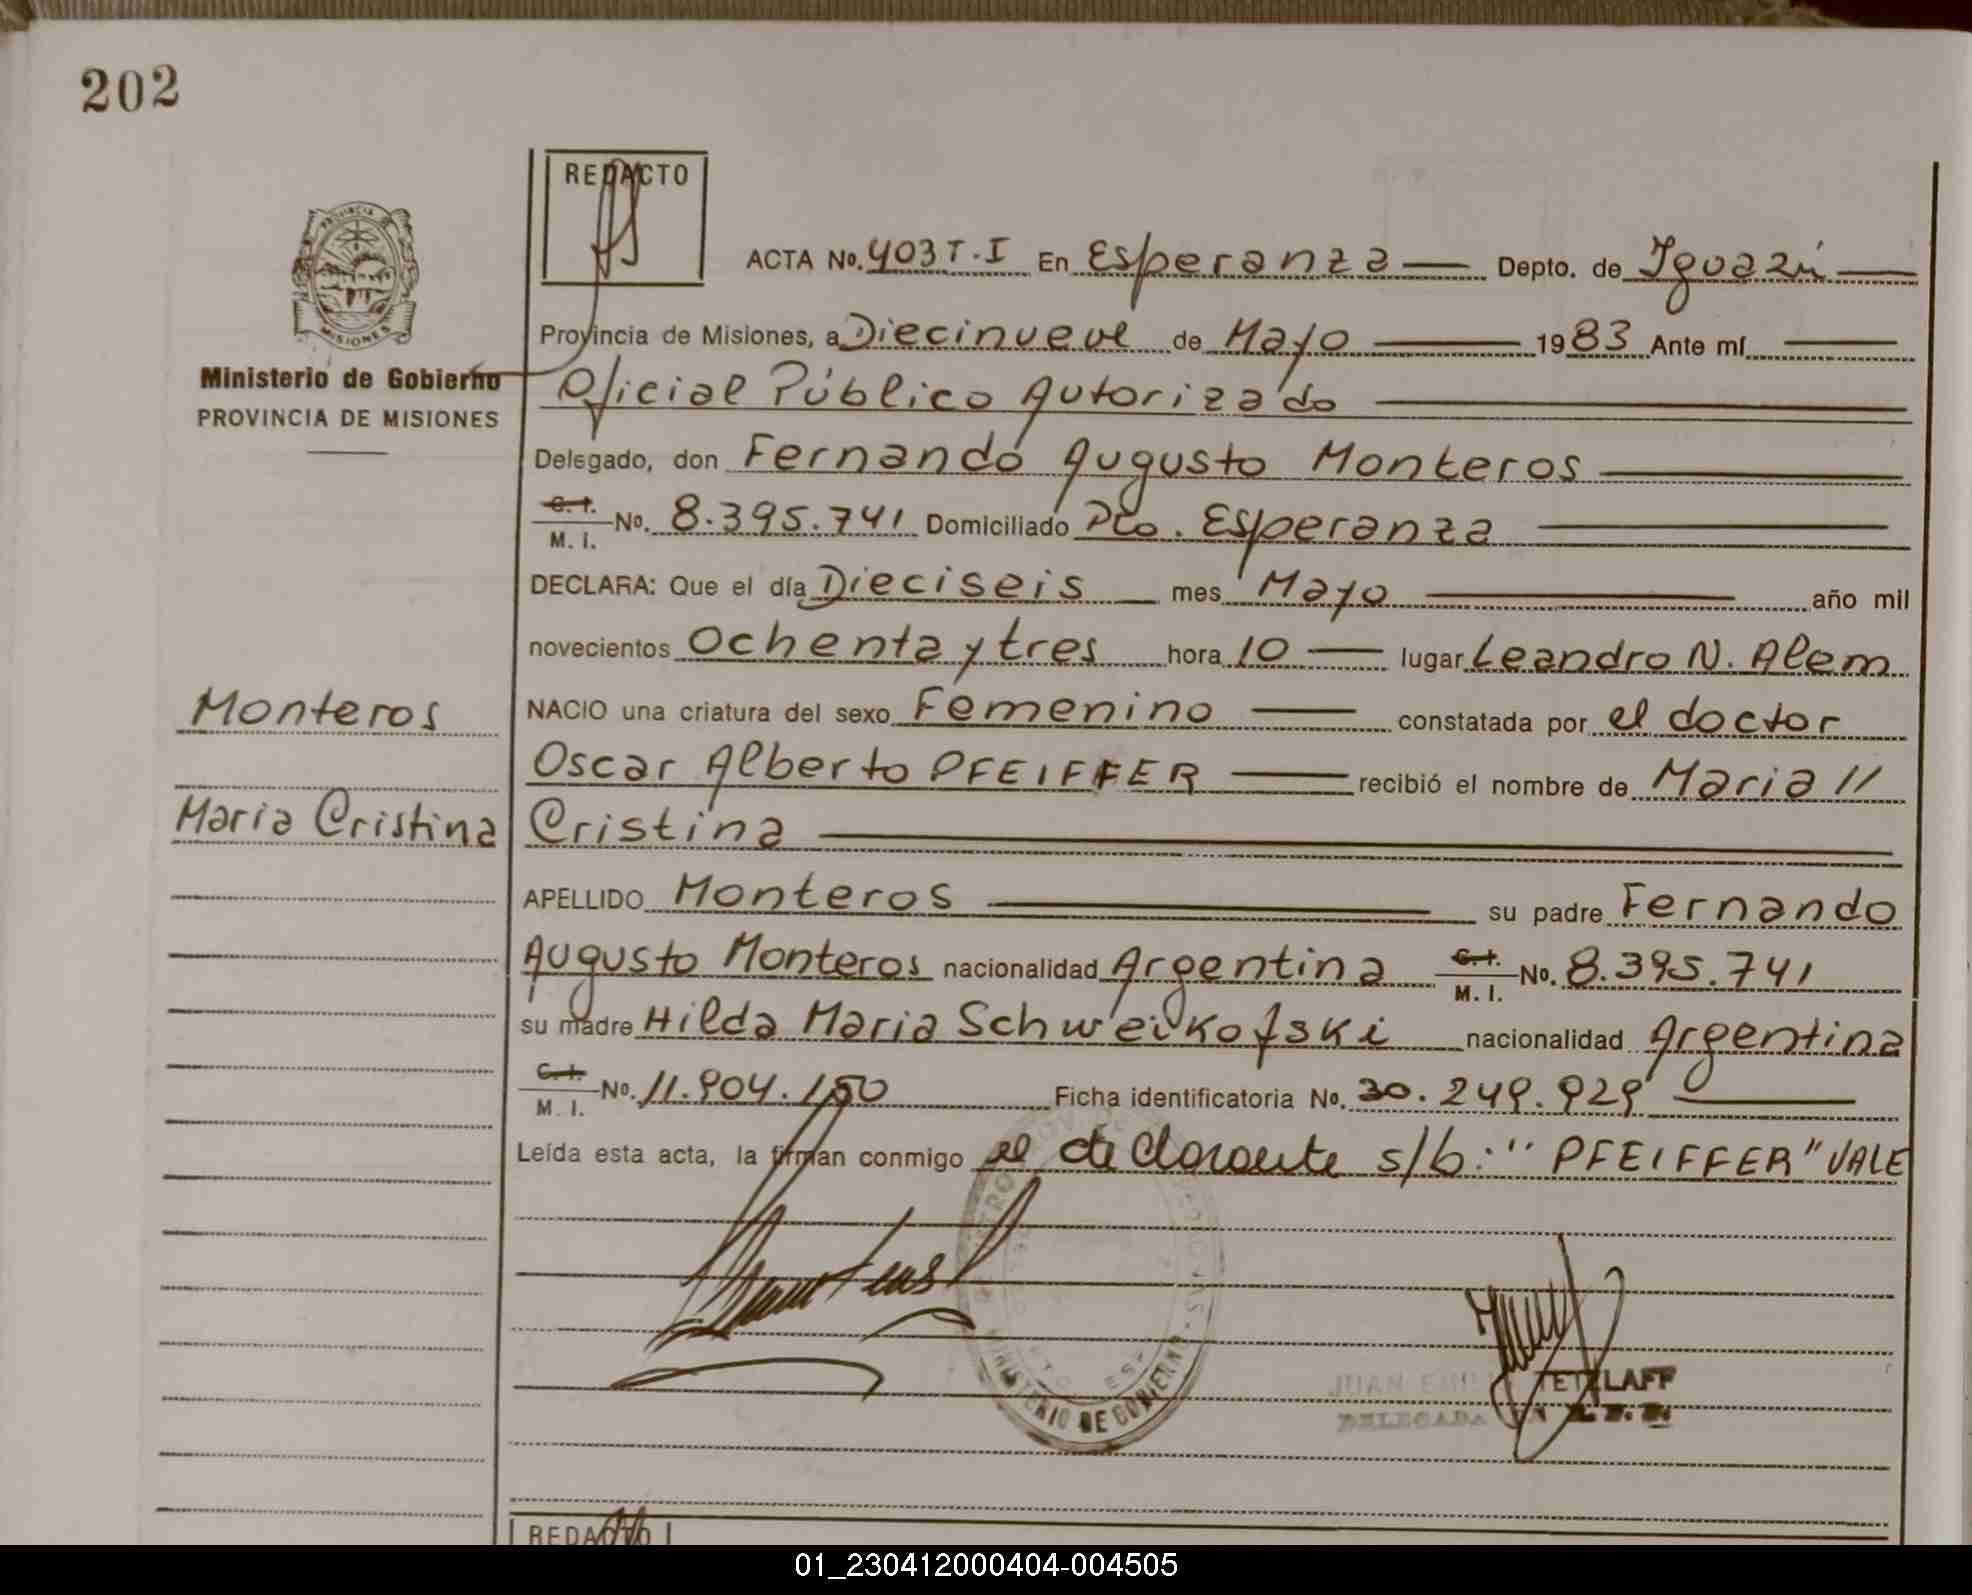 202
REDACTO
ACTA No. 403 T. I En Esperanza Depto. de Iguazú
PROVINCIA
MISIONES
Provincia de Misiones, a Diecinueve de Mayo 1983 Ante mí
Ministerio de Gobierno
PROVINCIA DE MISIONES
Oficial Público Autorizado
Delegado, don Fernando Augusto Monteros
C. I. M. I. No. 8.395.741 Domiciliado Pto. Esperanza
DECLARA: Que el día Dieciseis mes Mayo año mil
novecientos Ochenta y tres hora 10 lugar Leandro N. Alem
Monteros
NACIO una criatura del sexo Femenino constatada por el doctor
Oscar Alberto PFEIFFER recibió el nombre de Maria //
Maria Cristina
Cristina
APELLIDO Monteros su padre Fernando
Augusto Monteros nacionalidad Argentina C. I. M. I. No. 8.395.741
su madre Hilda Maria Schweikofski nacionalidad Argentina
C. I. M. I. No. 11.904.150 Ficha identificatoria No. 30.249.929
Leída esta acta, la firman conmigo el declarante s/b: "PFEIFFER" VALE
MINISTERIO DE GOBIERNO
JUAN EMI TETZLAFF
DELEGADA
REDACTO
01_230412000404-004505